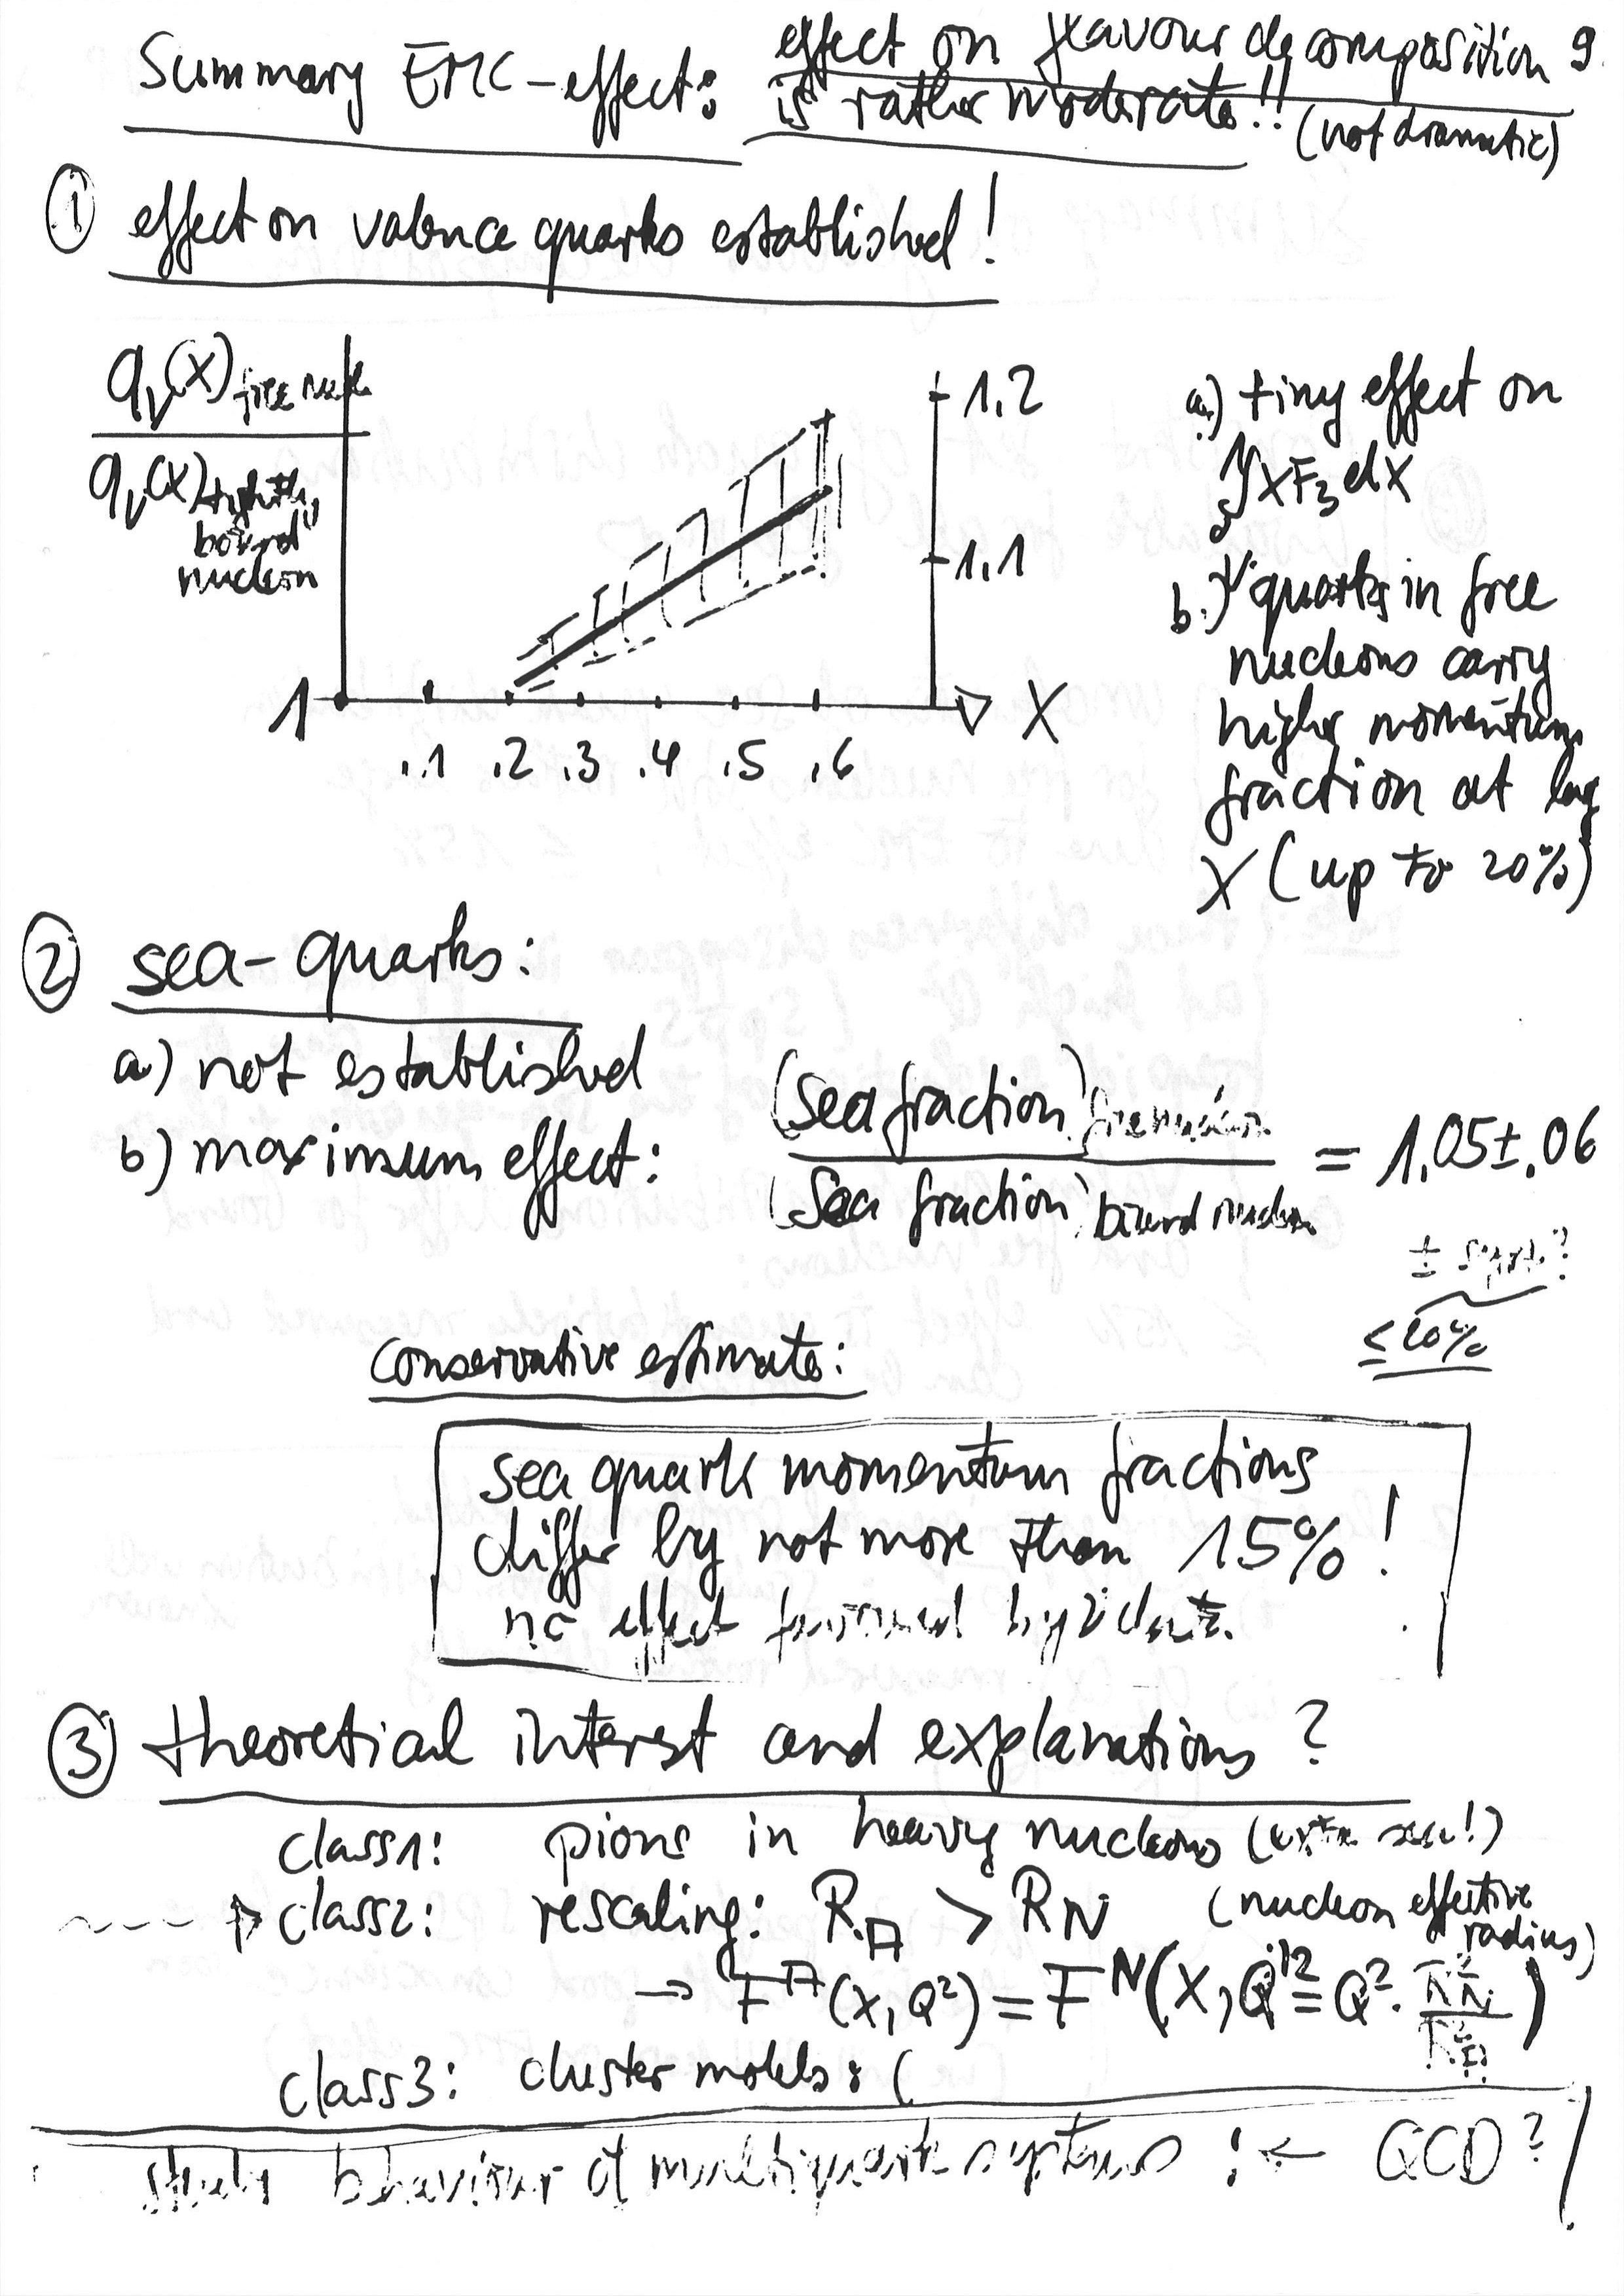 Summary EMC-effect: effect on flavour decomposition 9.
is rather moderate!! (not dramatic)
① effect on valence quarks established!
qᵥ(x) free nucl.
qᵥ(x) "tightly
bound"
nucleon
1.2
1.1
1
x
.1 .2 .3 .4 .5 .6
a.) tiny effect on
∫xF₃dx
b.) quarks in free
nucleons carry
higher momentum
fraction at
x (up to 20%)
② sea-quarks:
a) not established
b) maximum effect:
(sea fraction) free nucleon
(sea fraction) bound nucleon
= 1.05±.06
± syst.?
conservative estimate:
sea quark momentum fractions
differ by not more than 15%!
no effect favoured by ν data.
③ theoretical interest and explanations?
class1: pions in heavy nucleons (extra sea!)
class2: rescaling: R_A > R_N (nucleon effective
radius)
→ F^A(x,Q²) = F^N(x,Q'²=Q²· R²_N / R²_A)
class3: cluster models: (
study behaviour of multiquark systems : ← QCD?